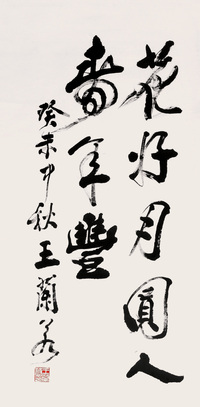 花好月圓人
壽年豐
癸未中秋王蘭若